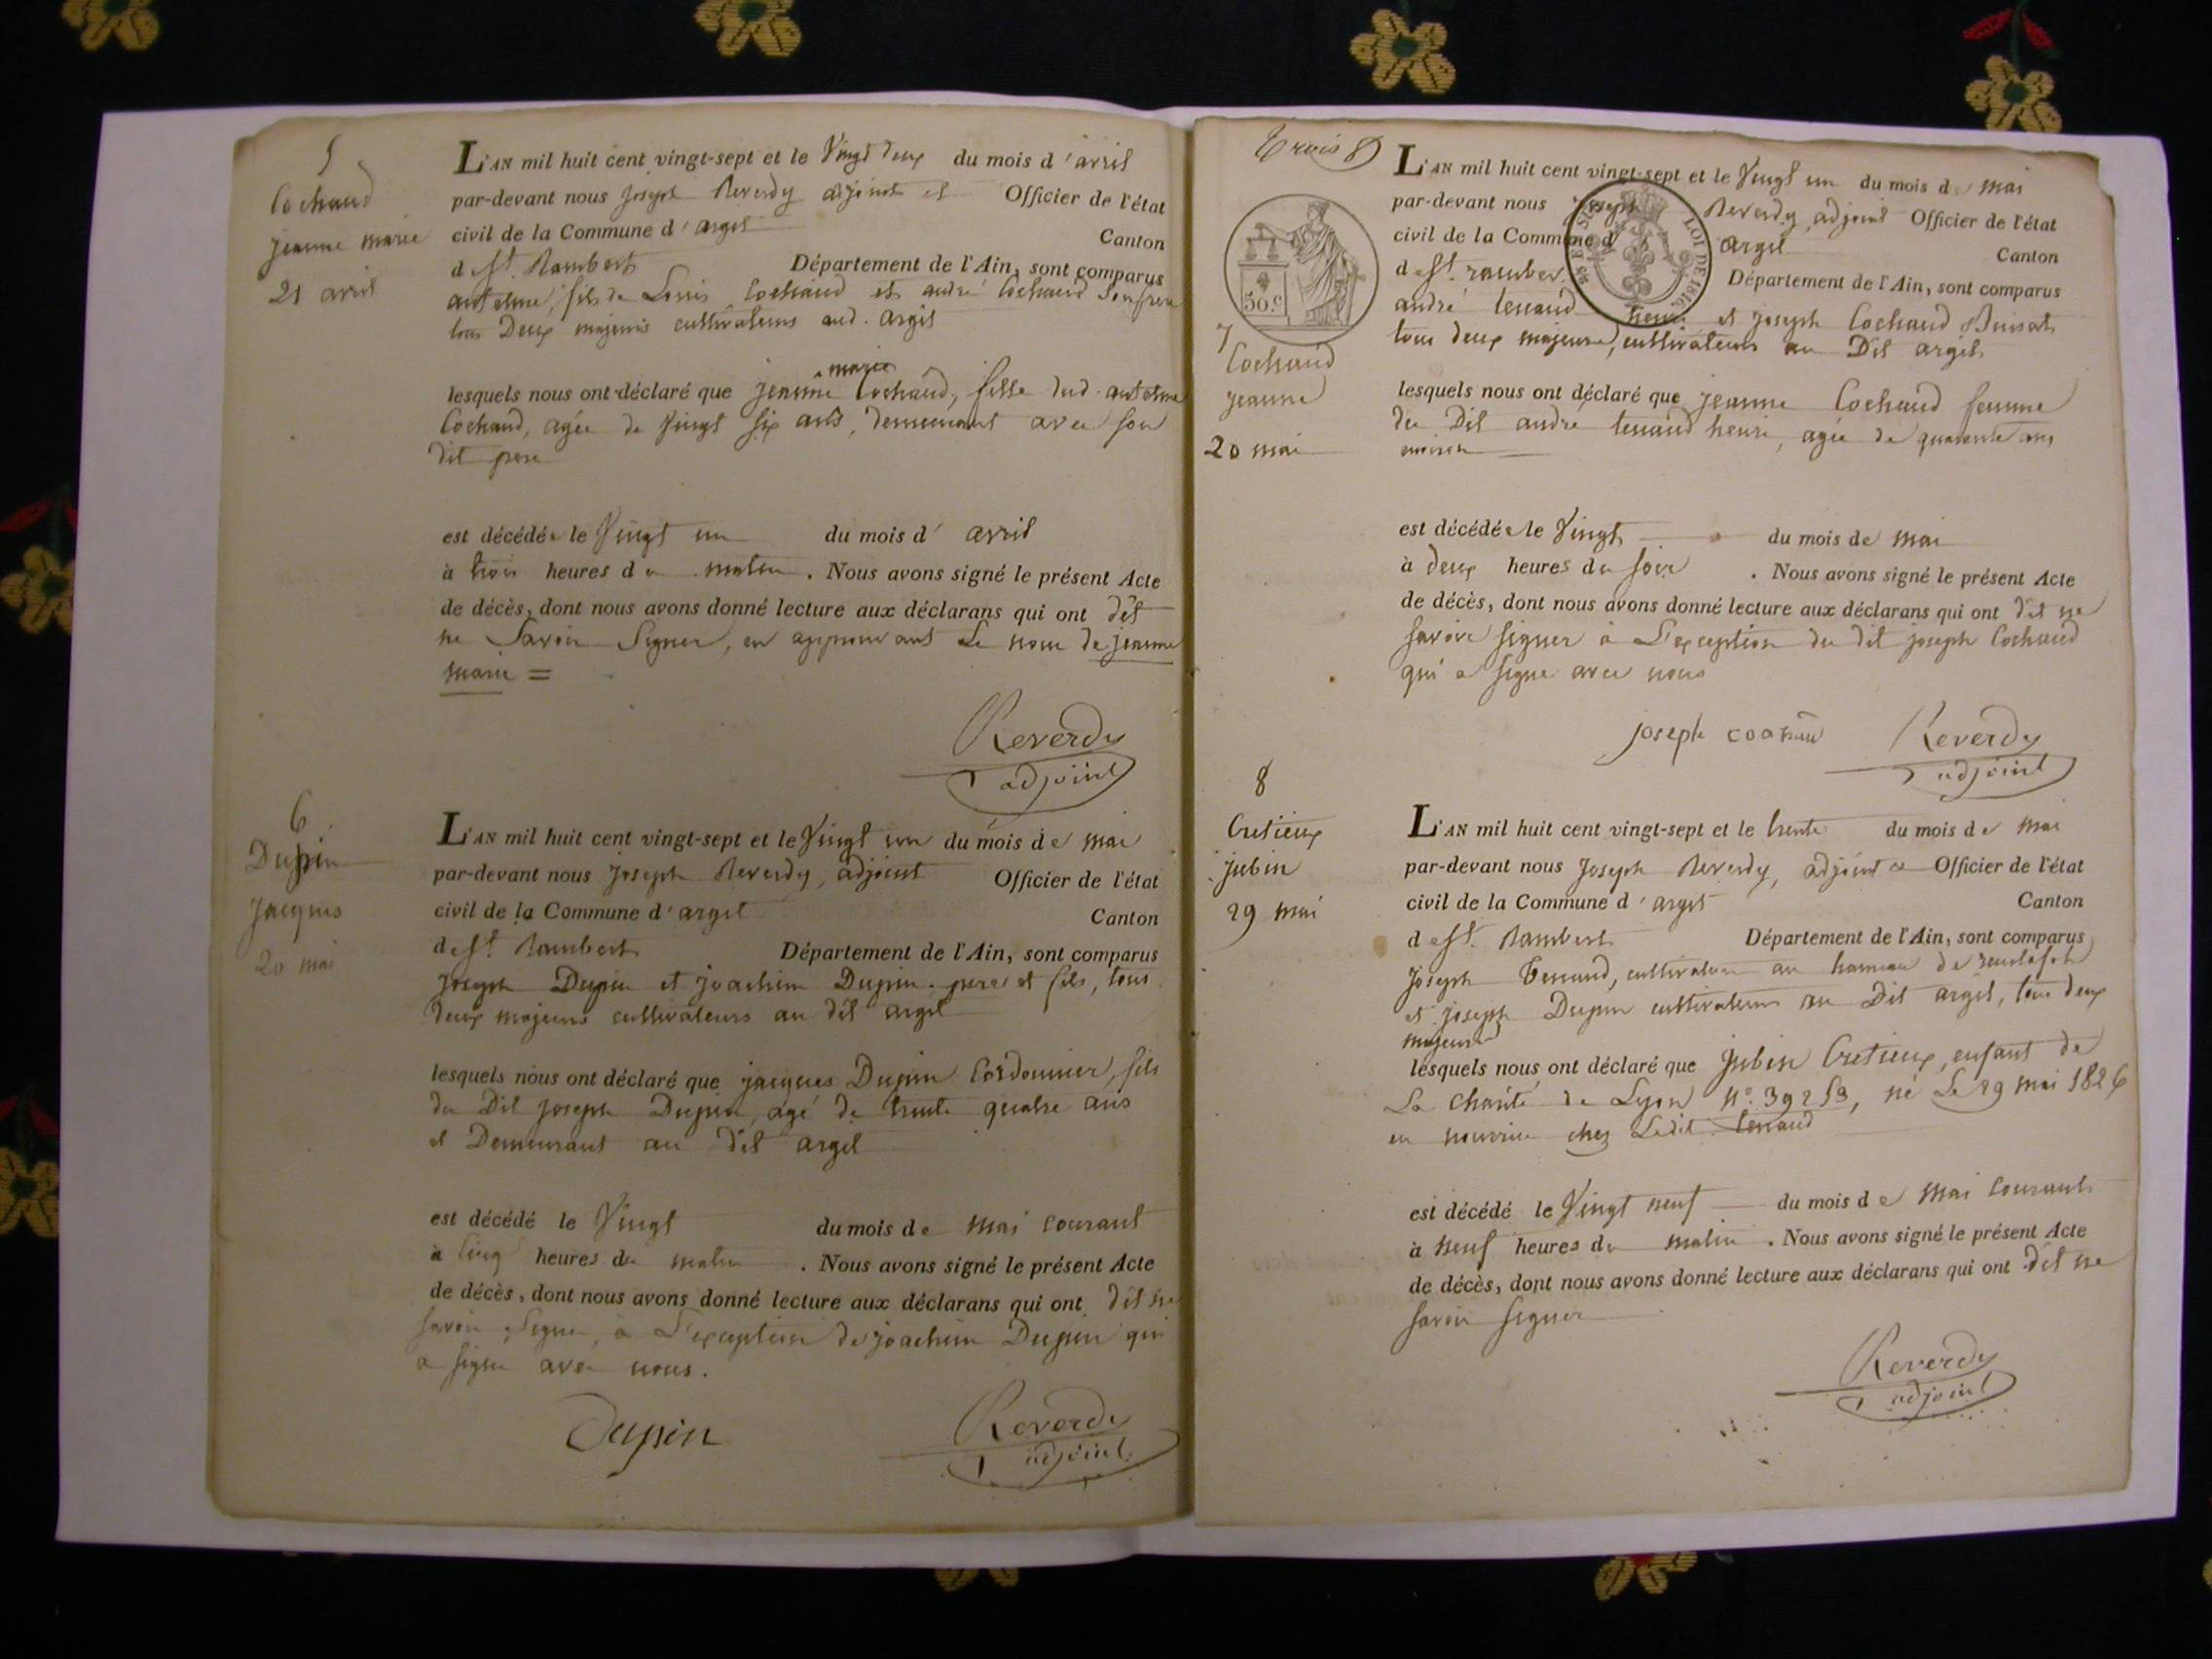 5
Cochaud
jeanne marie
21 avril
L'AN mil huit cent vingt-sept et le Vingt deux du mois d'avril
par-devant nous joseph Reverdy adjoint et Officier de l'état
civil de la Commune d'argit Canton
de St. Rambert Département de l'Ain, sont comparus
antelme, fils de Louis Cochaud et andré Cochaud son frere
tous Deux majeurs cultivateurs aud. argit
lesquels nous ont déclaré que jeanne marie Cochaud, fille dud. antelme
Cochaud, agée de Vingt Six ans, demeurant avec son
dit pere
est décédée le Vingt un du mois d'avril
à trois heures du matin. Nous avons signé le présent Acte
de décès, dont nous avons donné lecture aux déclarans qui ont dit
ne Savoir Signer, en approuvant Le nom de jeanne
marie =
Reverdy
adjoint
6
Dupin
jacques
20 mai
L'AN mil huit cent vingt-sept et le Vingt un du mois de mai
par-devant nous joseph Reverdy, adjoint Officier de l'état
civil de la Commune d'argit Canton
de St. Rambert Département de l'Ain, sont comparus
joseph Dupin et joachim Dupin pere et fils, tous
deux majeurs cultivateurs au dit argit
lesquels nous ont déclaré que jacques Dupin Cordonnier, fils
du Dit joseph Dupin, agé de trente quatre ans
et Demeurant au dit argit
est décédé le Vingt du mois de mai courant
à Cinq heures du matin. Nous avons signé le présent Acte
de décès, dont nous avons donné lecture aux déclarans qui ont dit ne
savoir Signer, à L'exception de joachim Dupin qui
a signé avec nous.
Dupin
Reverdy
adjoint
trois
50.c
LOI DE 1816.
7
Cochaud
jeanne
20 mai
L'AN mil huit cent vingt-sept et le Vingt un du mois de mai
par-devant nous joseph Reverdy, adjoint Officier de l'état
civil de la Commune d'argit Canton
de St. rambert Département de l'Ain, sont comparus
andré tenaud henri et joseph Cochaud
tous deux majeurs, cultivateurs au Dit argit
lesquels nous ont déclaré que jeanne Cochaud femme
du Dit andré tenaud henri, agée de quarante ans
environ
est décédée le Vingt du mois de mai
à deux heures du soir. Nous avons signé le présent Acte
de décès, dont nous avons donné lecture aux déclarans qui ont dit ne
savoir signer à L'exception du dit joseph Cochaud
qui a signé avec nous
joseph
Reverdy
adjoint
8
Cretieux
jubin
29 mai
L'AN mil huit cent vingt-sept et le trente du mois de mai
par-devant nous joseph Reverdy, adjoint Officier de l'état
civil de la Commune d'argit Canton
de St. Rambert Département de l'Ain, sont comparus
joseph Tenaud, cultivateur au hameau de
et joseph Dupin cultivateurs au Dit argit, tous deux
majeurs
lesquels nous ont déclaré que jubin Cretieux, enfant de
La charité de Lyon N.° 39253, né Le 29 mai 1826
en nourrice chez Ledit tenaud
est décédé le Vingt neuf du mois de mai courant
à neuf heures du matin. Nous avons signé le présent Acte
de décès, dont nous avons donné lecture aux déclarans qui ont dit ne
savoir signer
Reverdy
adjoint